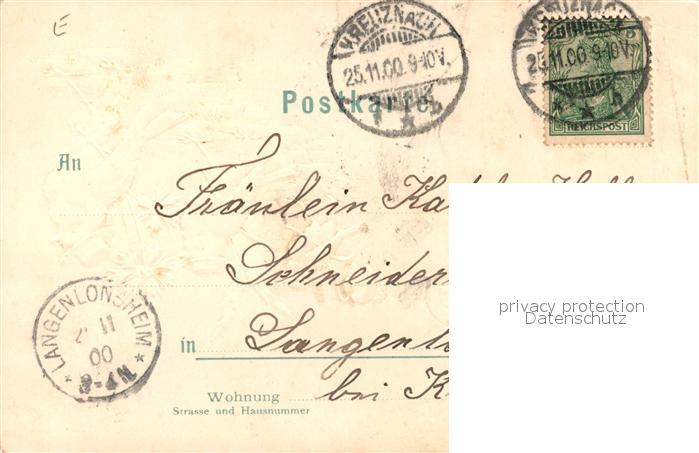 E
KREUZNACH
25.11.00. 9-10V.
* b
KREUZNACH
25.11.00. 9-10V.
* b
5
REICHSPOST
Postkarte
An
Fräulein
Schneider
LANGENLONSHEIM
11
00
in
bei
Wohnung
Strasse und Hausnummer
privacy protection
Datenschutz